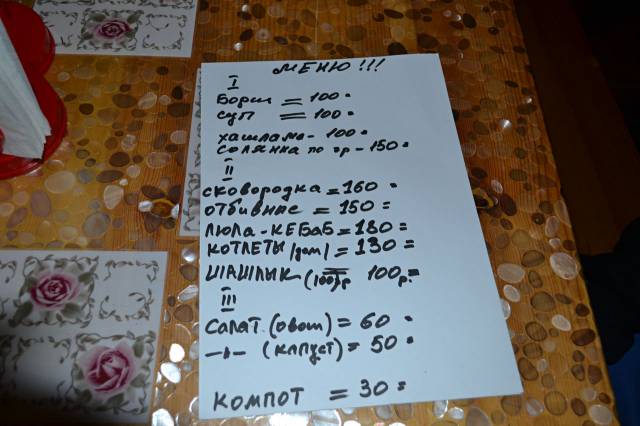 МЕНЮ!!!
I
Борщ = 100=
Суп = 100=
хашлама - 100=
СОЛЯНКА по гр - 150=
II
СКОВОРОДКА = 160=
ОТБИВНЫЕ = 150=
ЛЮЛА-КЕБАБ = 180=
КОТЛЕТЫ (дом) = 130=
ШАШЛЫК (100)гр 100р.=
III
САЛАТ (овощ) = 60=
-"- (капуст) = 50=
КОМПОТ = 30=